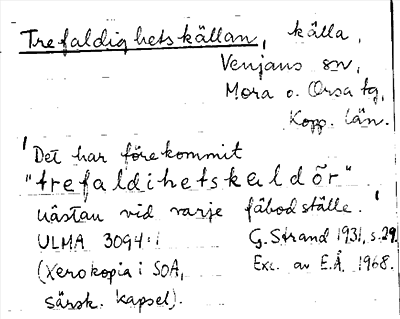 Trefaldighetskällan, källa,
Venjans sn,
Mora o. Orsa tg,
Kopp. län.
'Det har förekommit
"trefaldihetskaldõr"
nästan vid varje fäbodställe.'
ULMA 3094:1 G. Strand 1931, s.29.
(Xerokopia i SOA, Exc. av E.Å. 1968.
särsk. kapsel).